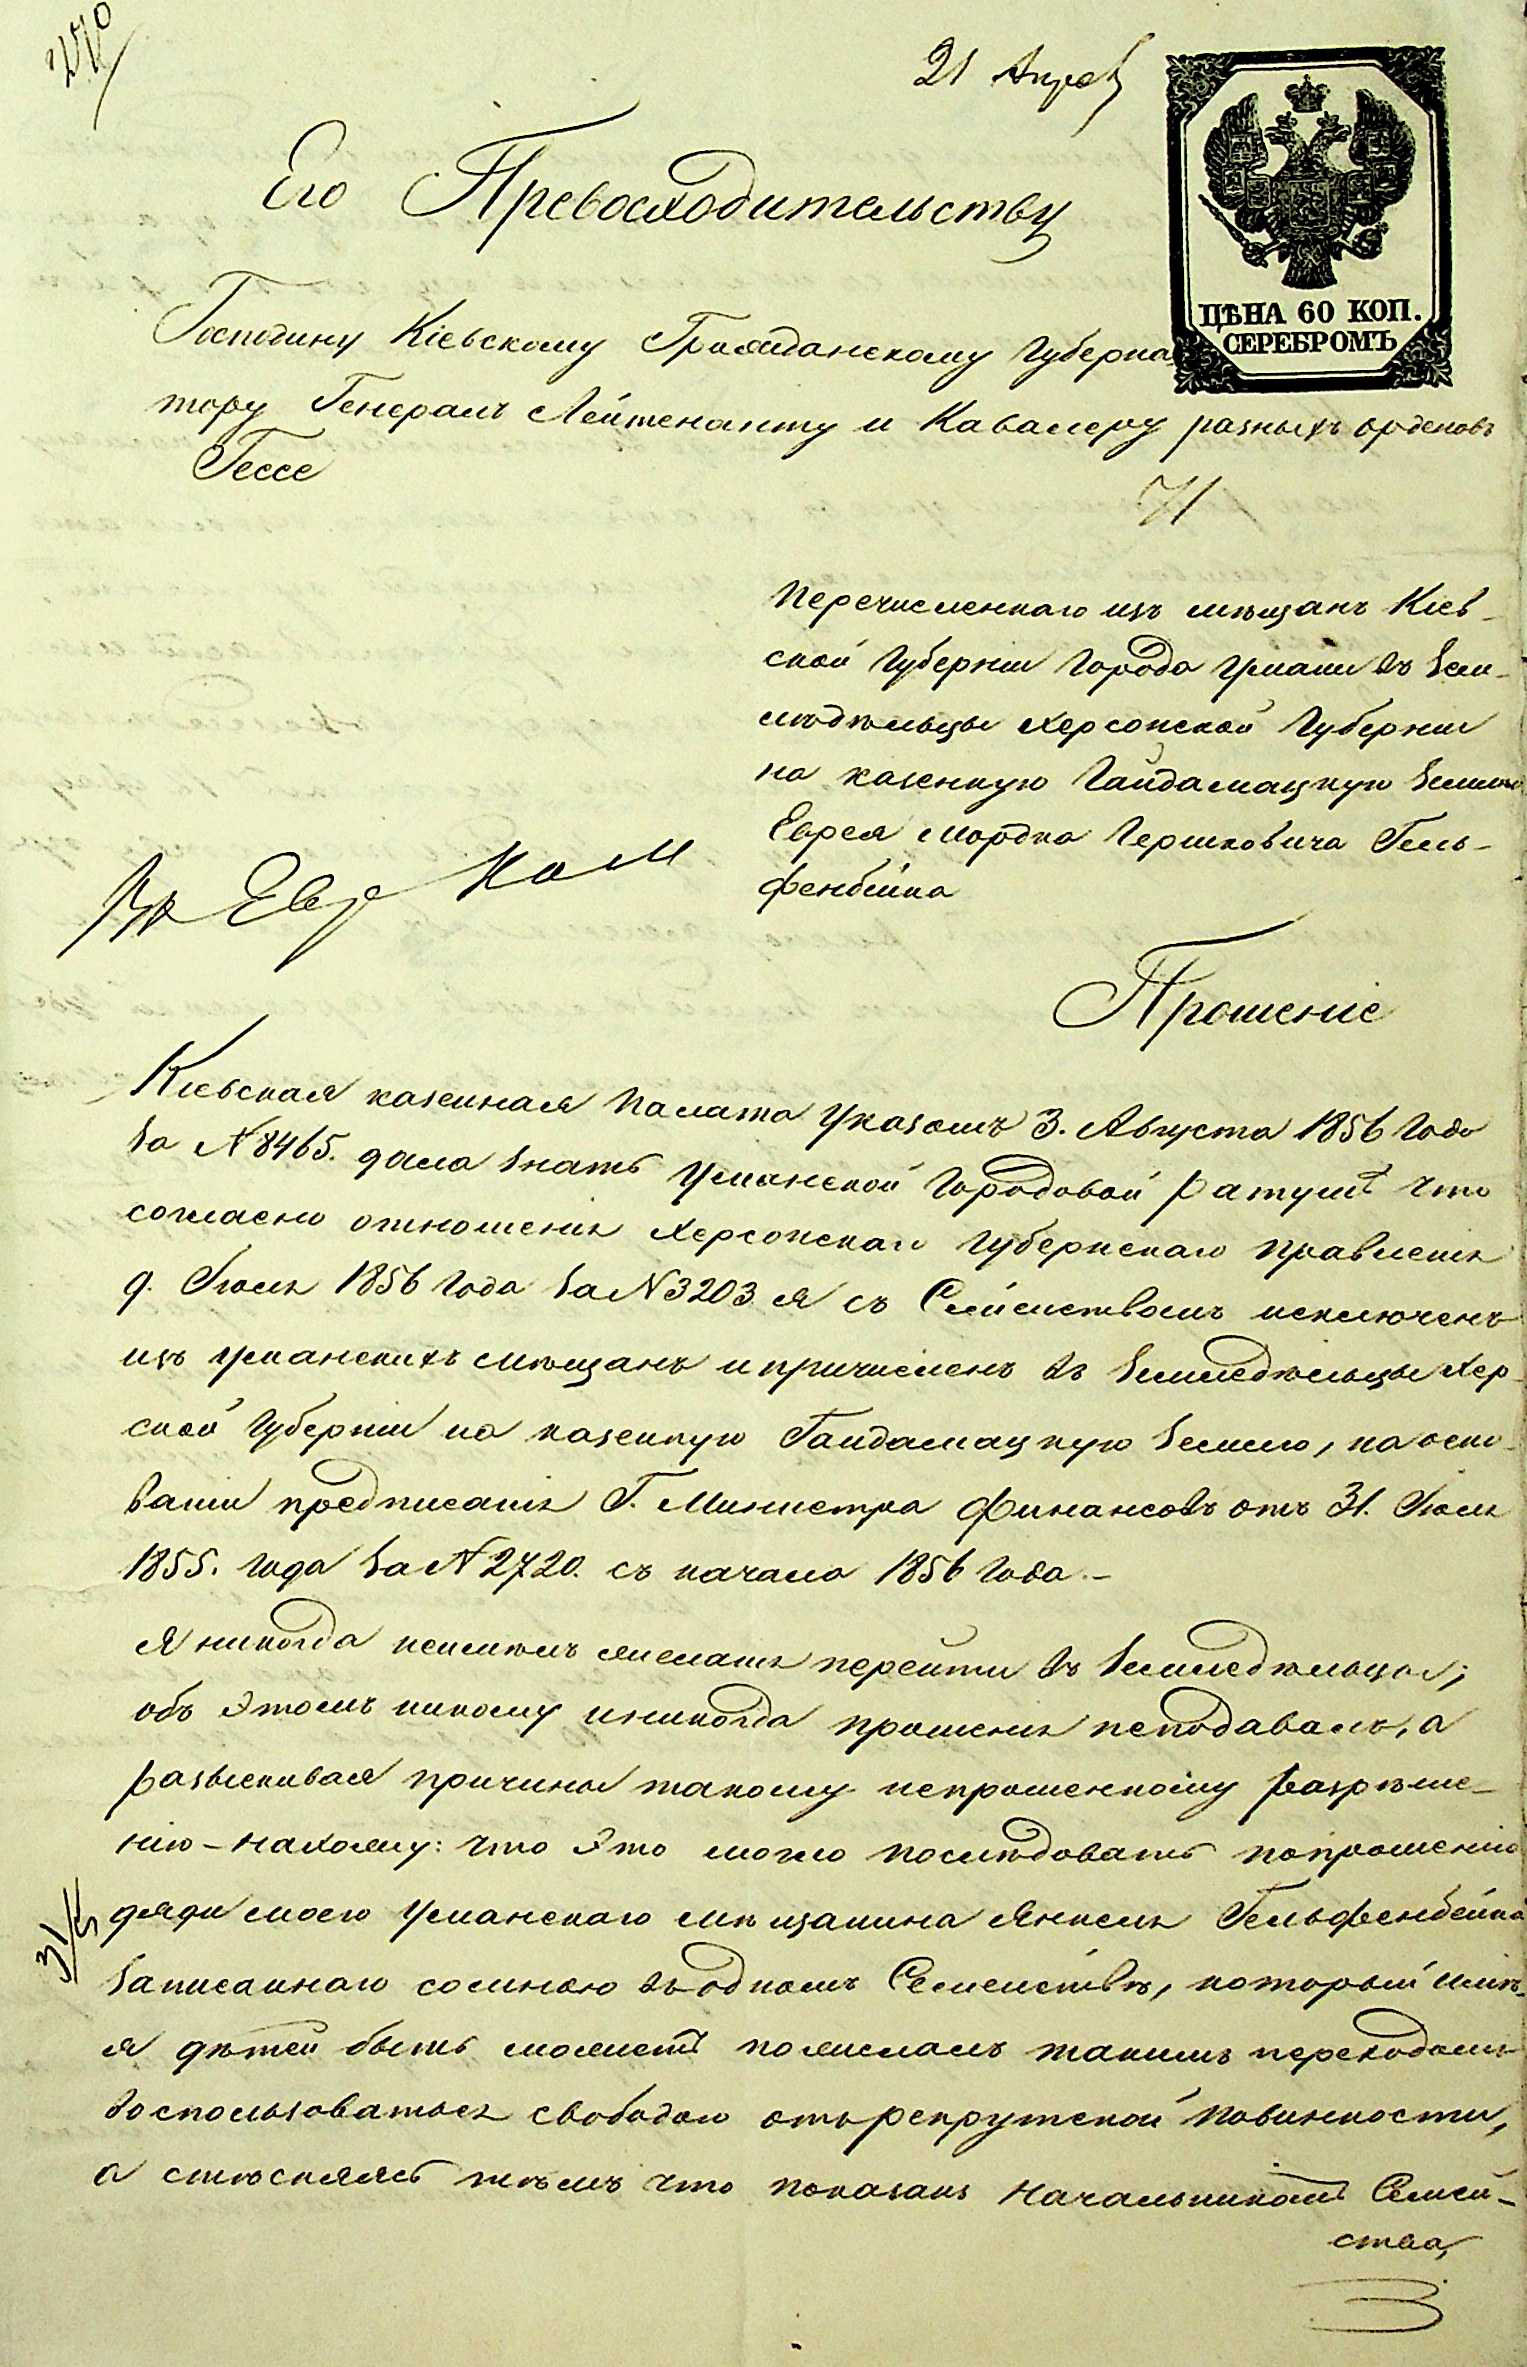 21 Апрел
ЦѢНА 60 КОП.
СЕРЕБРОМЪ
Его Превосходительству
Господину Кіевскому Гражданскому Губерна
тору Генералъ Лейтенанту и Кавалеру разныхъ орденовъ
Гессе
Перечисленнаго изъ мѣщанъ Кіев-
ской Губерніи Города Умани въ Зем-
ледѣльцы Херсонской Губерніи
на казенную Гайдамацкую Землю
Еврея Мордка Гершковича Гель-
фенбейна
Въ Евр Ком
Прошеніе
Кіевская казенная Палата Указомъ 3. Августа 1856 Года
За N 8465. дала Знать Уманской Городовой Ратуши что
согласно отношенія Херсонскаго Губернскаго Правленія
9. Іюля 1856 Года За N 3203 я съ Семействомъ исключенъ
изъ Уманскихъ мѣщанъ и причисленъ въ Земледѣльцы Хер-
ской Губерніи на казенную Гайдамацкую Землю, на осно-
ваніи предписанія Г. Министра Финансовъ отъ 31. Іюля
1855. года За N 2720. съ начала 1856 Года.-
Я никогда неимѣлъ желанія перейти въ Земледѣльцы;
объ этомъ никому иникогда прошенія неподавалъ, а
разыскивая причины такому непрошенному разрѣше-
нію - нахожу: что это могло послѣдовать попрошенію
дяди моего Уманскаго мѣщанина Янкеля Гельфенбейна
Записаннаго сомною въодномъ Семействѣ, который имѣ-
я дѣтей быть можетъ пожелалъ такимъ переходомъ
Воспользоваться свободою отърекрутской Повинности,
а стѣсняясь тѣмъ что показанъ Начальникомъ Семей-
ства,
31/5